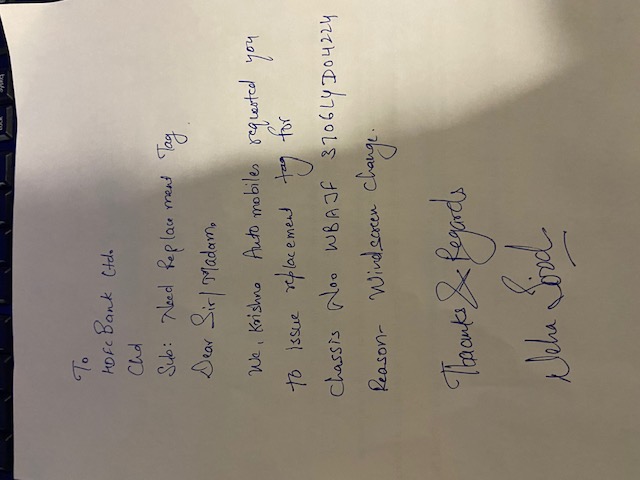 To
HDFC Bank Ltd.
Chd
Sub: Need Replacement Tag.
Dear Sir/Madam,
We, Krishna Automobiles requested you
to issue replacement tag for
Chassis No. WBAJF 3706LYD04224
Reason- Windscreen Change.
Thanks & Regards
Neha